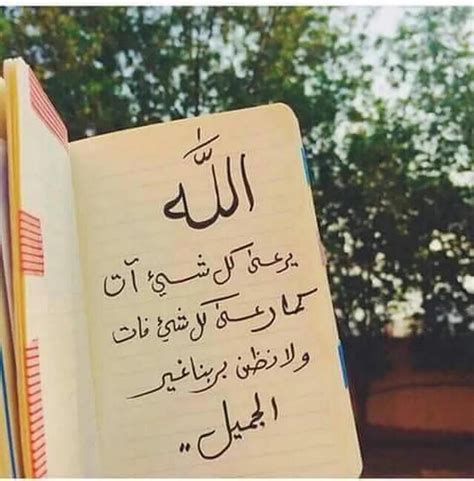 اللَّه
يرعىٰ كل شيئ آت
كما رعىٰ كل شيئ فات
ولا نظن بربنا غير
الجميل ..